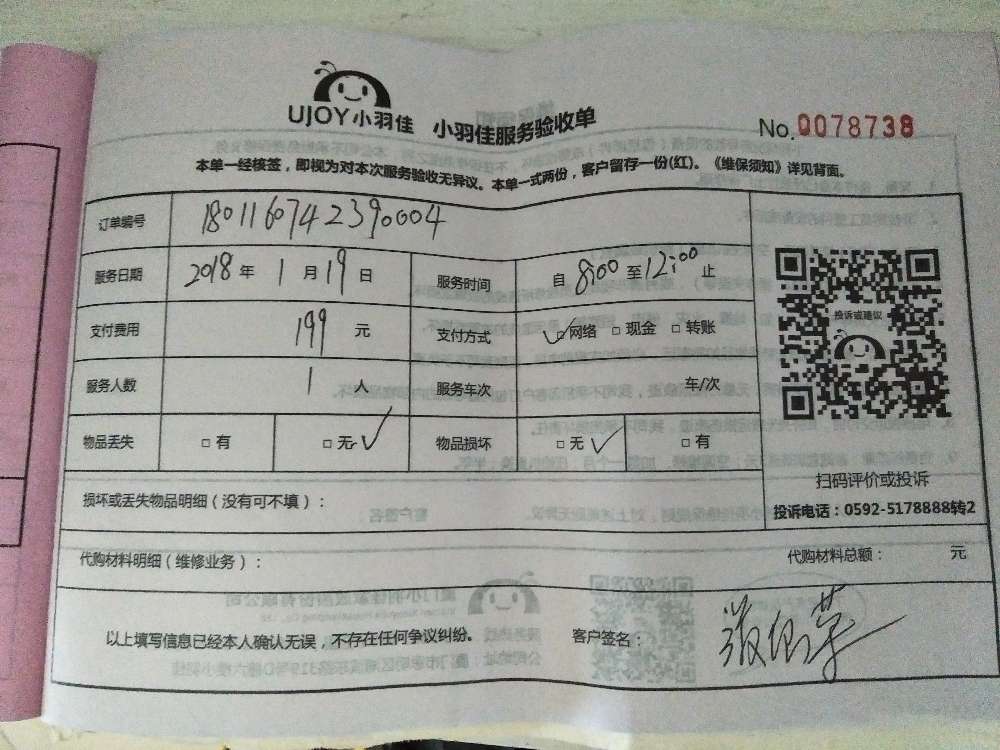 UJOY小羽佳 小羽佳服务验收单 No.0078738
本单一经核签，即视为对本次服务验收无异议。本单一式两份，客户留存一份(红)。《维保须知》详见背面。
订单编号 1801160742390004
服务日期 2018 年 1 月 19 日 服务时间 自 8:00 至 12:00 止
支付费用 199 元 支付方式 ✓□ 网络 □ 现金 □ 转账
服务人数 1 人 服务车次 车/次
物品丢失 □ 有 □ 无 ✓ 物品损坏 □ 无 ✓ □ 有
投诉或建议
扫码评价或投诉
投诉电话：0592-5178888转2
损坏或丢失物品明细（没有可不填）：
代购材料明细（维修业务）： 代购材料总额： 元
以上填写信息已经本人确认无误，不存在任何争议纠纷。 客户签名：